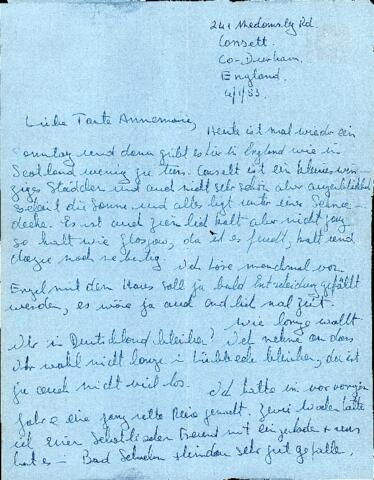 241 Medomsley Rd.
Consett.
Co-Durham.
England.
4/1/53
Liebe Tante Annemarie,
Heute ist mal wieder ein
Sonntag und dann gibt es hier in England wie in
Scotland wenig zu tun. Consett ist ein kleines win-
ziges Städtchen und auch nicht sehr schön aber augenblicklich
scheint die Sonne und alles liegt unter einer Schnee-
decke. Es ist auch ziemlich kalt aber nicht ganz
so kalt wie Glasgow, da ist es feucht, kalt und
dazu noch nebelig.
Ich höre manchmal von
Engel mit dem Haus soll ja bald Entscheidung gefällt
werden, es wäre ja auch endlich mal Zeit.
Wie lange wollt
Ihr in Deutschland bleiben? Ich nehme an dass
Ihr wohl nicht lange in bleiben, da ist
ja auch nicht viel los.
Ich hatte im vorvorigen
Jahre eine ganz nette Reise gemacht. Zwei Wochen hatte
ich einen Schottischen Freund mit eingeladen + uns
hat es in Bad + Lindau sehr gut gefallen.